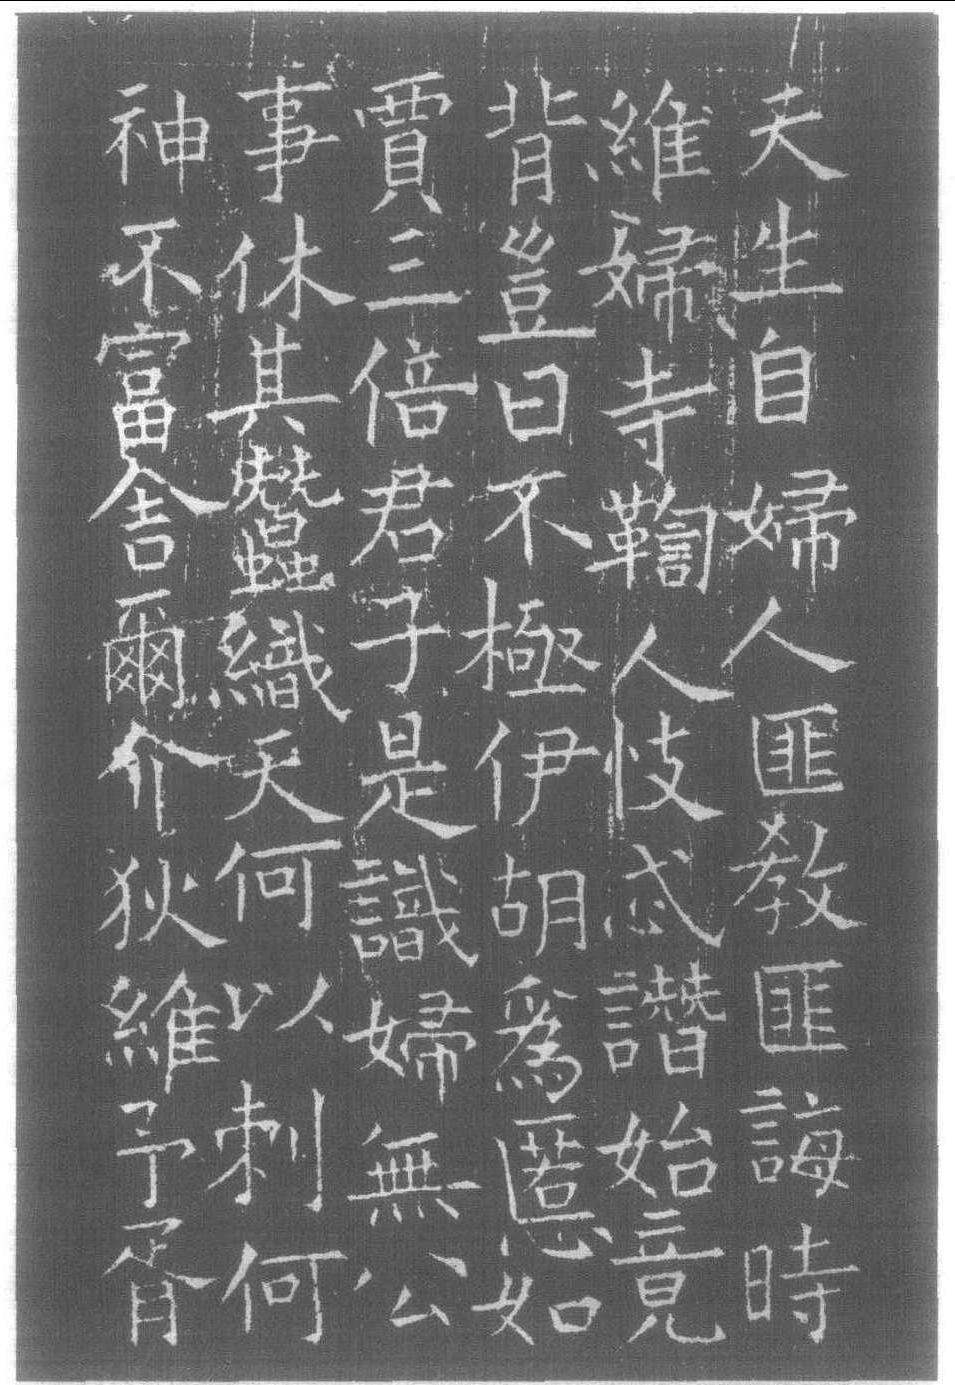 天生自婦人匪教匪誨時
維婦寺鞫人忮忒譖始竟
背豈曰不極伊胡爲慝如
賈三倍君子是識婦無公
事休其蠶織天何以刺何
神不富舍爾介狄維予胥